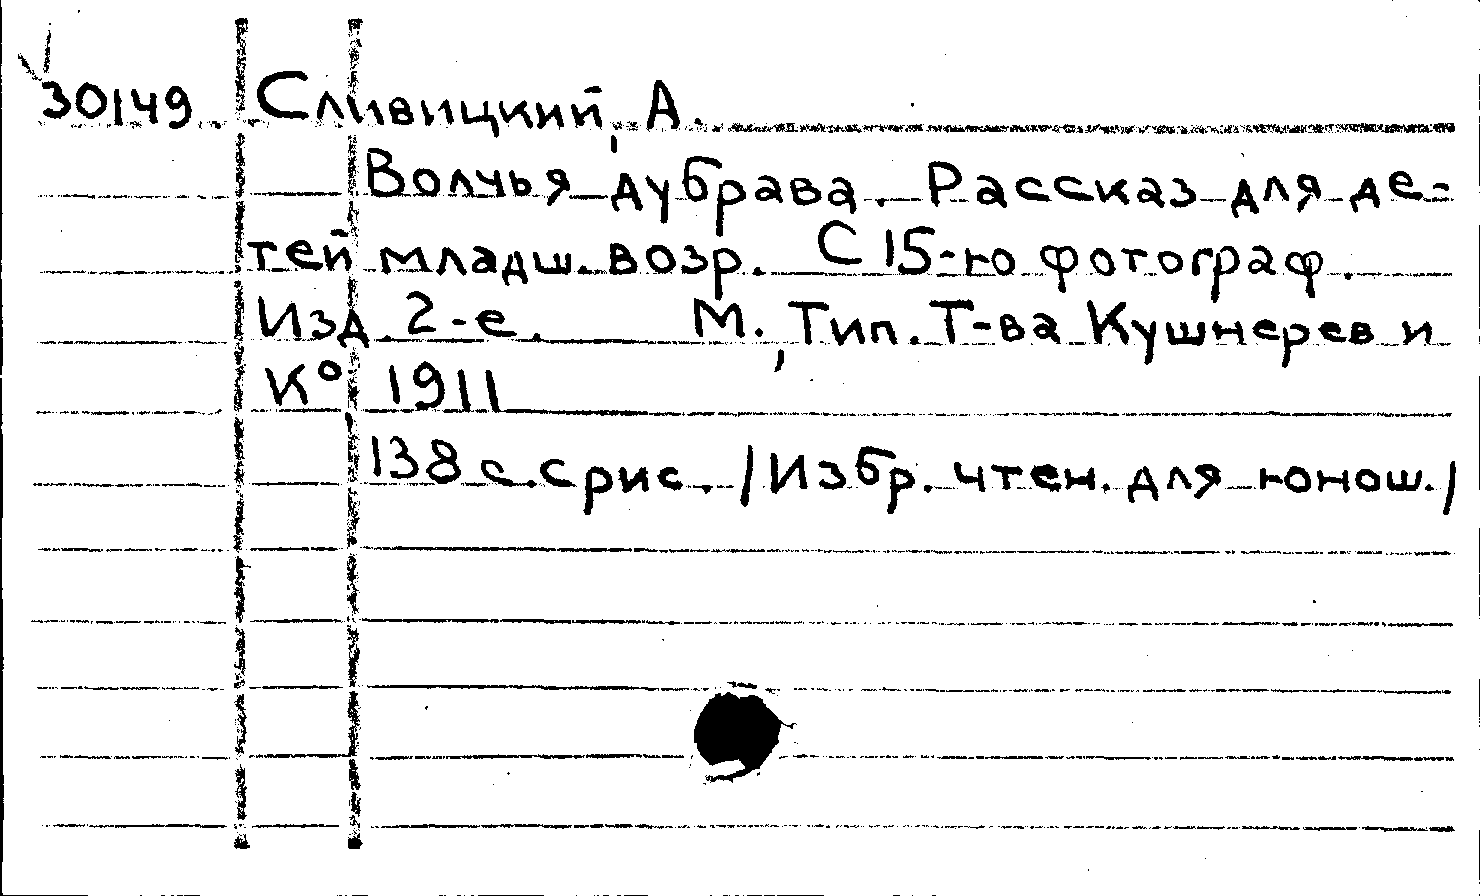 30149 Сливицкий, А.
Волчья дубрава. Рассказ для де-
тей младш. возр. С 15-ю фотограф.
Изд. 2-е. М., Тип. Т-ва Кушнерев и
Кº 1911
138 с. с рис. /Избр. чтен. для юнош./